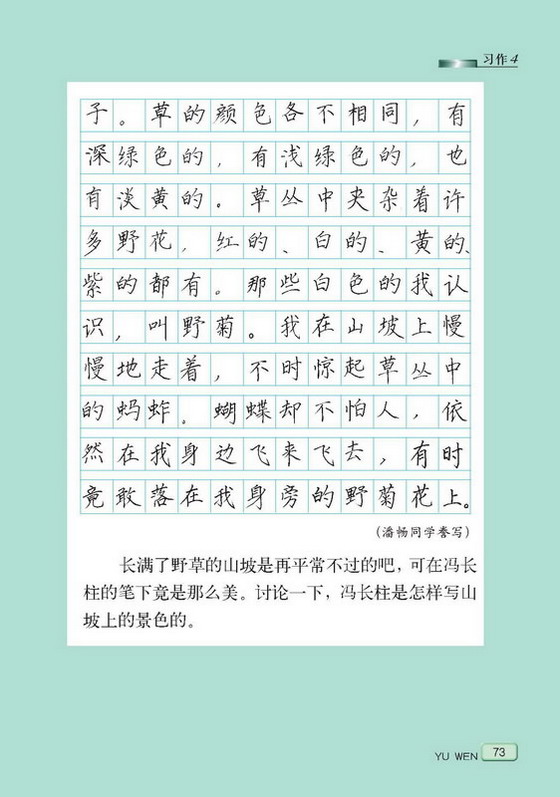 习作4
子。草的颜色各不相同，有
深绿色的，有浅绿色的，也
有淡黄的。草丛中夹杂着许
多野花，红的、白的、黄的、
紫的都有。那些白色的我认
识，叫野菊。我在山坡上慢
慢地走着，不时惊起草丛中
的蚂蚱。蝴蝶却不怕人，依
然在我身边飞来飞去，有时
竟敢落在我身旁的野菊花上。
（潘畅同学誊写）
长满了野草的山坡是再平常不过的吧，可在冯长
柱的笔下竟是那么美。讨论一下，冯长柱是怎样写山
坡上的景色的。
YU WEN 73